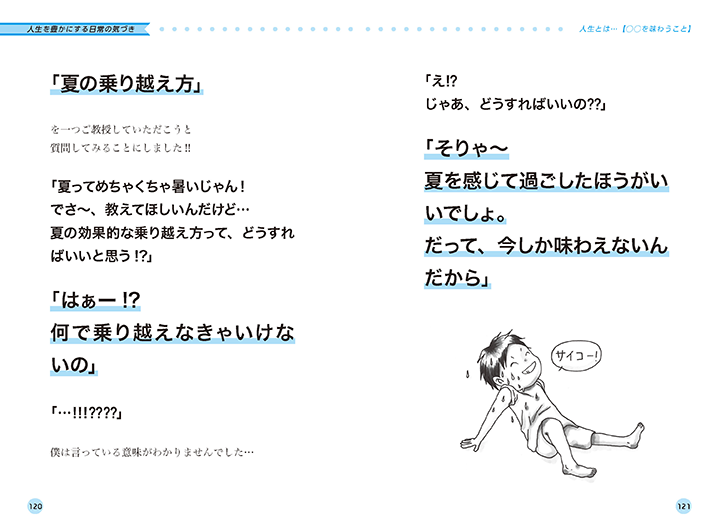 人生を豊かにする日常の気づき
「夏の乗り越え方」
を一つご教授していただこうと
質問してみることにしました!!
「夏ってめちゃくちゃ暑いじゃん！
でさ〜、教えてほしいんだけど…
夏の効果的な乗り越え方って、どうすれ
ばいいと思う!?」
「はぁー!?
何で乗り越えなきゃいけな
いの」
「…!!!????」
僕は言っている意味がわかりませんでした…
120
人生とは…【○○を味わうこと】
「え!?
じゃあ、どうすればいいの??」
「そりゃ〜
夏を感じて過ごしたほうがい
いでしょ。
だって、今しか味わえないん
だから」
サイコー!
121